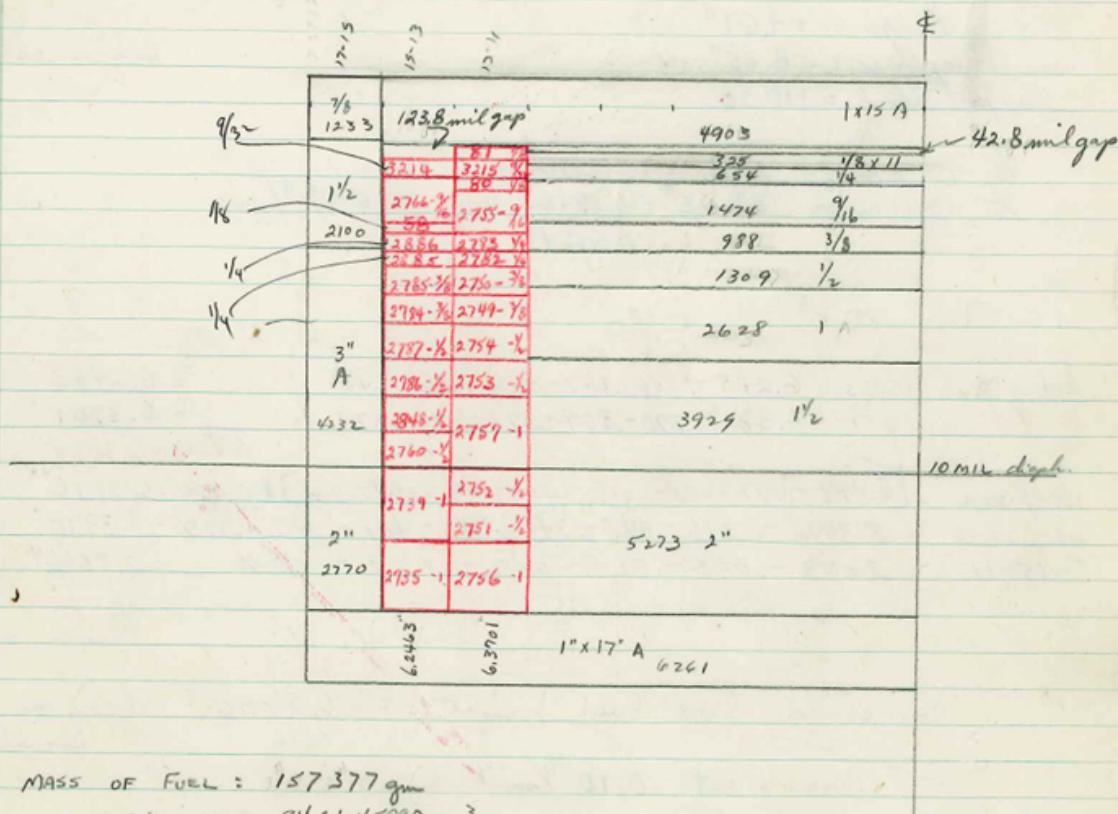 17-15
15-13
13-11
℄
7/8
1233
123.8 mil gap
1x15 A
4903
42.8 mil gap
9/32
81
3214
3215
80
325 1/8 x 11
654 1/4
1 1/2
2100
1/8
2766-9/16
58
2755-9/16
1474 9/16
2886
2783 1/4
988 3/8
1/4
2885
2782 1/4
1309 1/2
1/4
2785-3/8
2750-3/8
2784-3/8
2749-3/8
2628 1 A
3"
A
4232
2787-1/2
2754 -1/2
2786-1/2
2753 -1/2
2848-1/2
2757-1
3929 1 1/2
2760-1/2
10 MIL diaph.
2739-1
2752-1/2
2751 -1/2
2"
2770
5273 2"
2935-1
2756-1
6.2463"
6.3701"
1" x 17" A
6261
MASS OF FUEL : 157377 gm